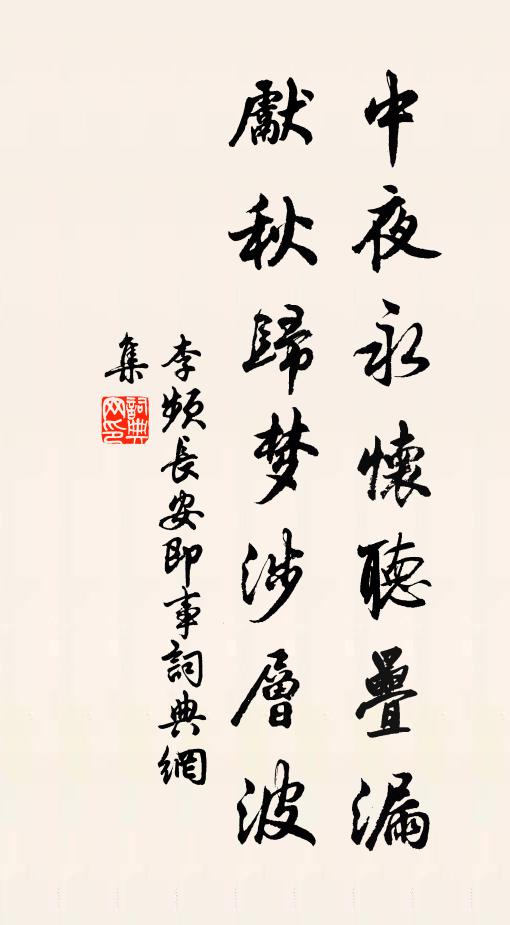 中夜永懷聽疊漏
獻秋歸梦涉層波
李頻長安即事詞典網
集
詞典网印